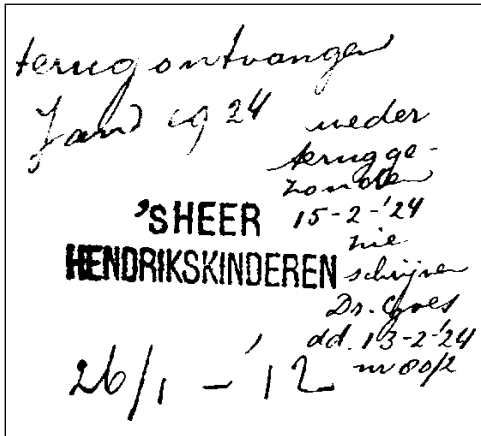 terug ontvangen
Jan 1924
weder
terugge-
zonden
15-2-'24
zie
schrijven
Dr. Goes
dd. 13-2-'24
nr 80/2
'SHEER
HENDRIKSKINDEREN
26/1 - '12